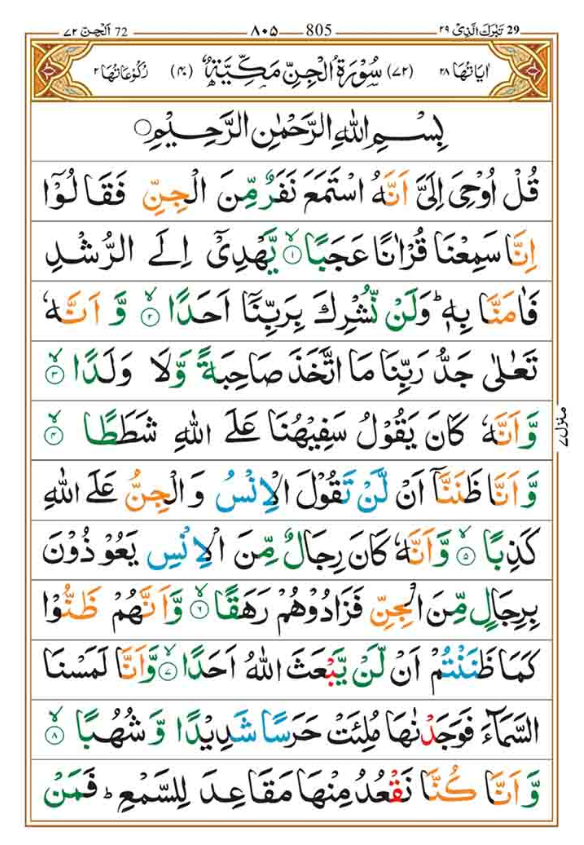 29 تَبٰرَكَ الَّذِىْ ٢٩ ٨٠٥ 805 اَلْجِنّ 72 ٧٢
اٰيَاتُهَا ٢٨ (٧٢) سُوْرَةُ الْجِنِّ مَكِّيَّةٌ (٤٠) رُكُوْعَاتُهَا ٢
بِسْمِ اللّٰهِ الرَّحْمٰنِ الرَّحِيْمِ
قُلْ اُوْحِىَ اِلَىَّ اَنَّهُ اسْتَمَعَ نَفَرٌ مِّنَ الْجِنِّ فَقَالُوْۤا
اِنَّا سَمِعْنَا قُرْاٰنًا عَجَبًا ۙ‏ ١ يَّهْدِىْۤ اِلَى الرُّشْدِ
فَاٰمَنَّا بِهٖ ؕ وَلَنْ نُّشْرِكَ بِرَبِّنَاۤ اَحَدًا ۙ‏ ٢ وَّ اَنَّهٗ
تَعٰلٰى جَدُّ رَبِّنَا مَا اتَّخَذَ صَاحِبَةً وَّلَا وَلَدًا ۙ‏ ٣
وَّ اَنَّهٗ كَانَ يَقُوْلُ سَفِيْهُنَا عَلَى اللّٰهِ شَطَطًا ۙ‏ ٤
وَّ اَنَّا ظَنَنَّاۤ اَنْ لَّنْ تَقُوْلَ الْاِنْسُ وَ الْجِنُّ عَلَى اللّٰهِ
كَذِبًا ۙ‏ ٥ وَّاَنَّهٗ كَانَ رِجَالٌ مِّنَ الْاِنْسِ يَعُوْذُوْنَ
بِرِجَالٍ مِّنَ الْجِنِّ فَزَادُوْهُمْ رَهَقًا ۙ‏ ٦ وَّاَنَّهُمْ ظَنُّوْا
كَمَا ظَنَنْتُمْ اَنْ لَّنْ يَّبْعَثَ اللّٰهُ اَحَدًا ۙ‏ ٧ وَّاَنَّا لَمَسْنَا
السَّمَآءَ فَوَجَدْنٰهَا مُلِئَتْ حَرَسًا شَدِيْدًا وَّ شُهُبًا ۙ‏ ٨
وَّ اَنَّا كُنَّا نَقْعُدُ مِنْهَا مَقَاعِدَ لِلسَّمْعِ ؕ فَمَنْ
منزل ٧